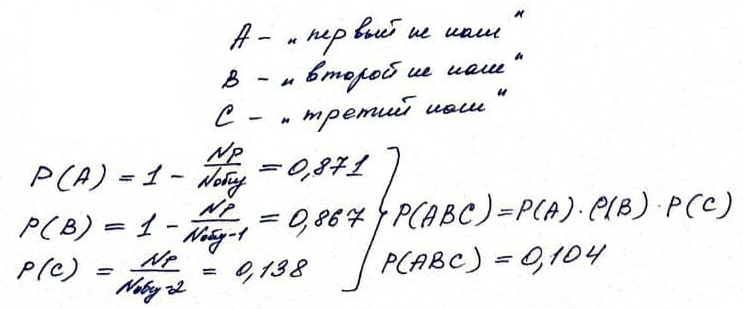 A - „первый не наш"
B - „второй не наш"
C - „третий наш"
P(A) = 1 - Np/Nобщ = 0,871
P(B) = 1 - Np/Nобщ-1 = 0,867
P(C) = Np/Nобщ-2 = 0,138
P(ABC) = P(A) · P(B) · P(C)
P(ABC) = 0,104